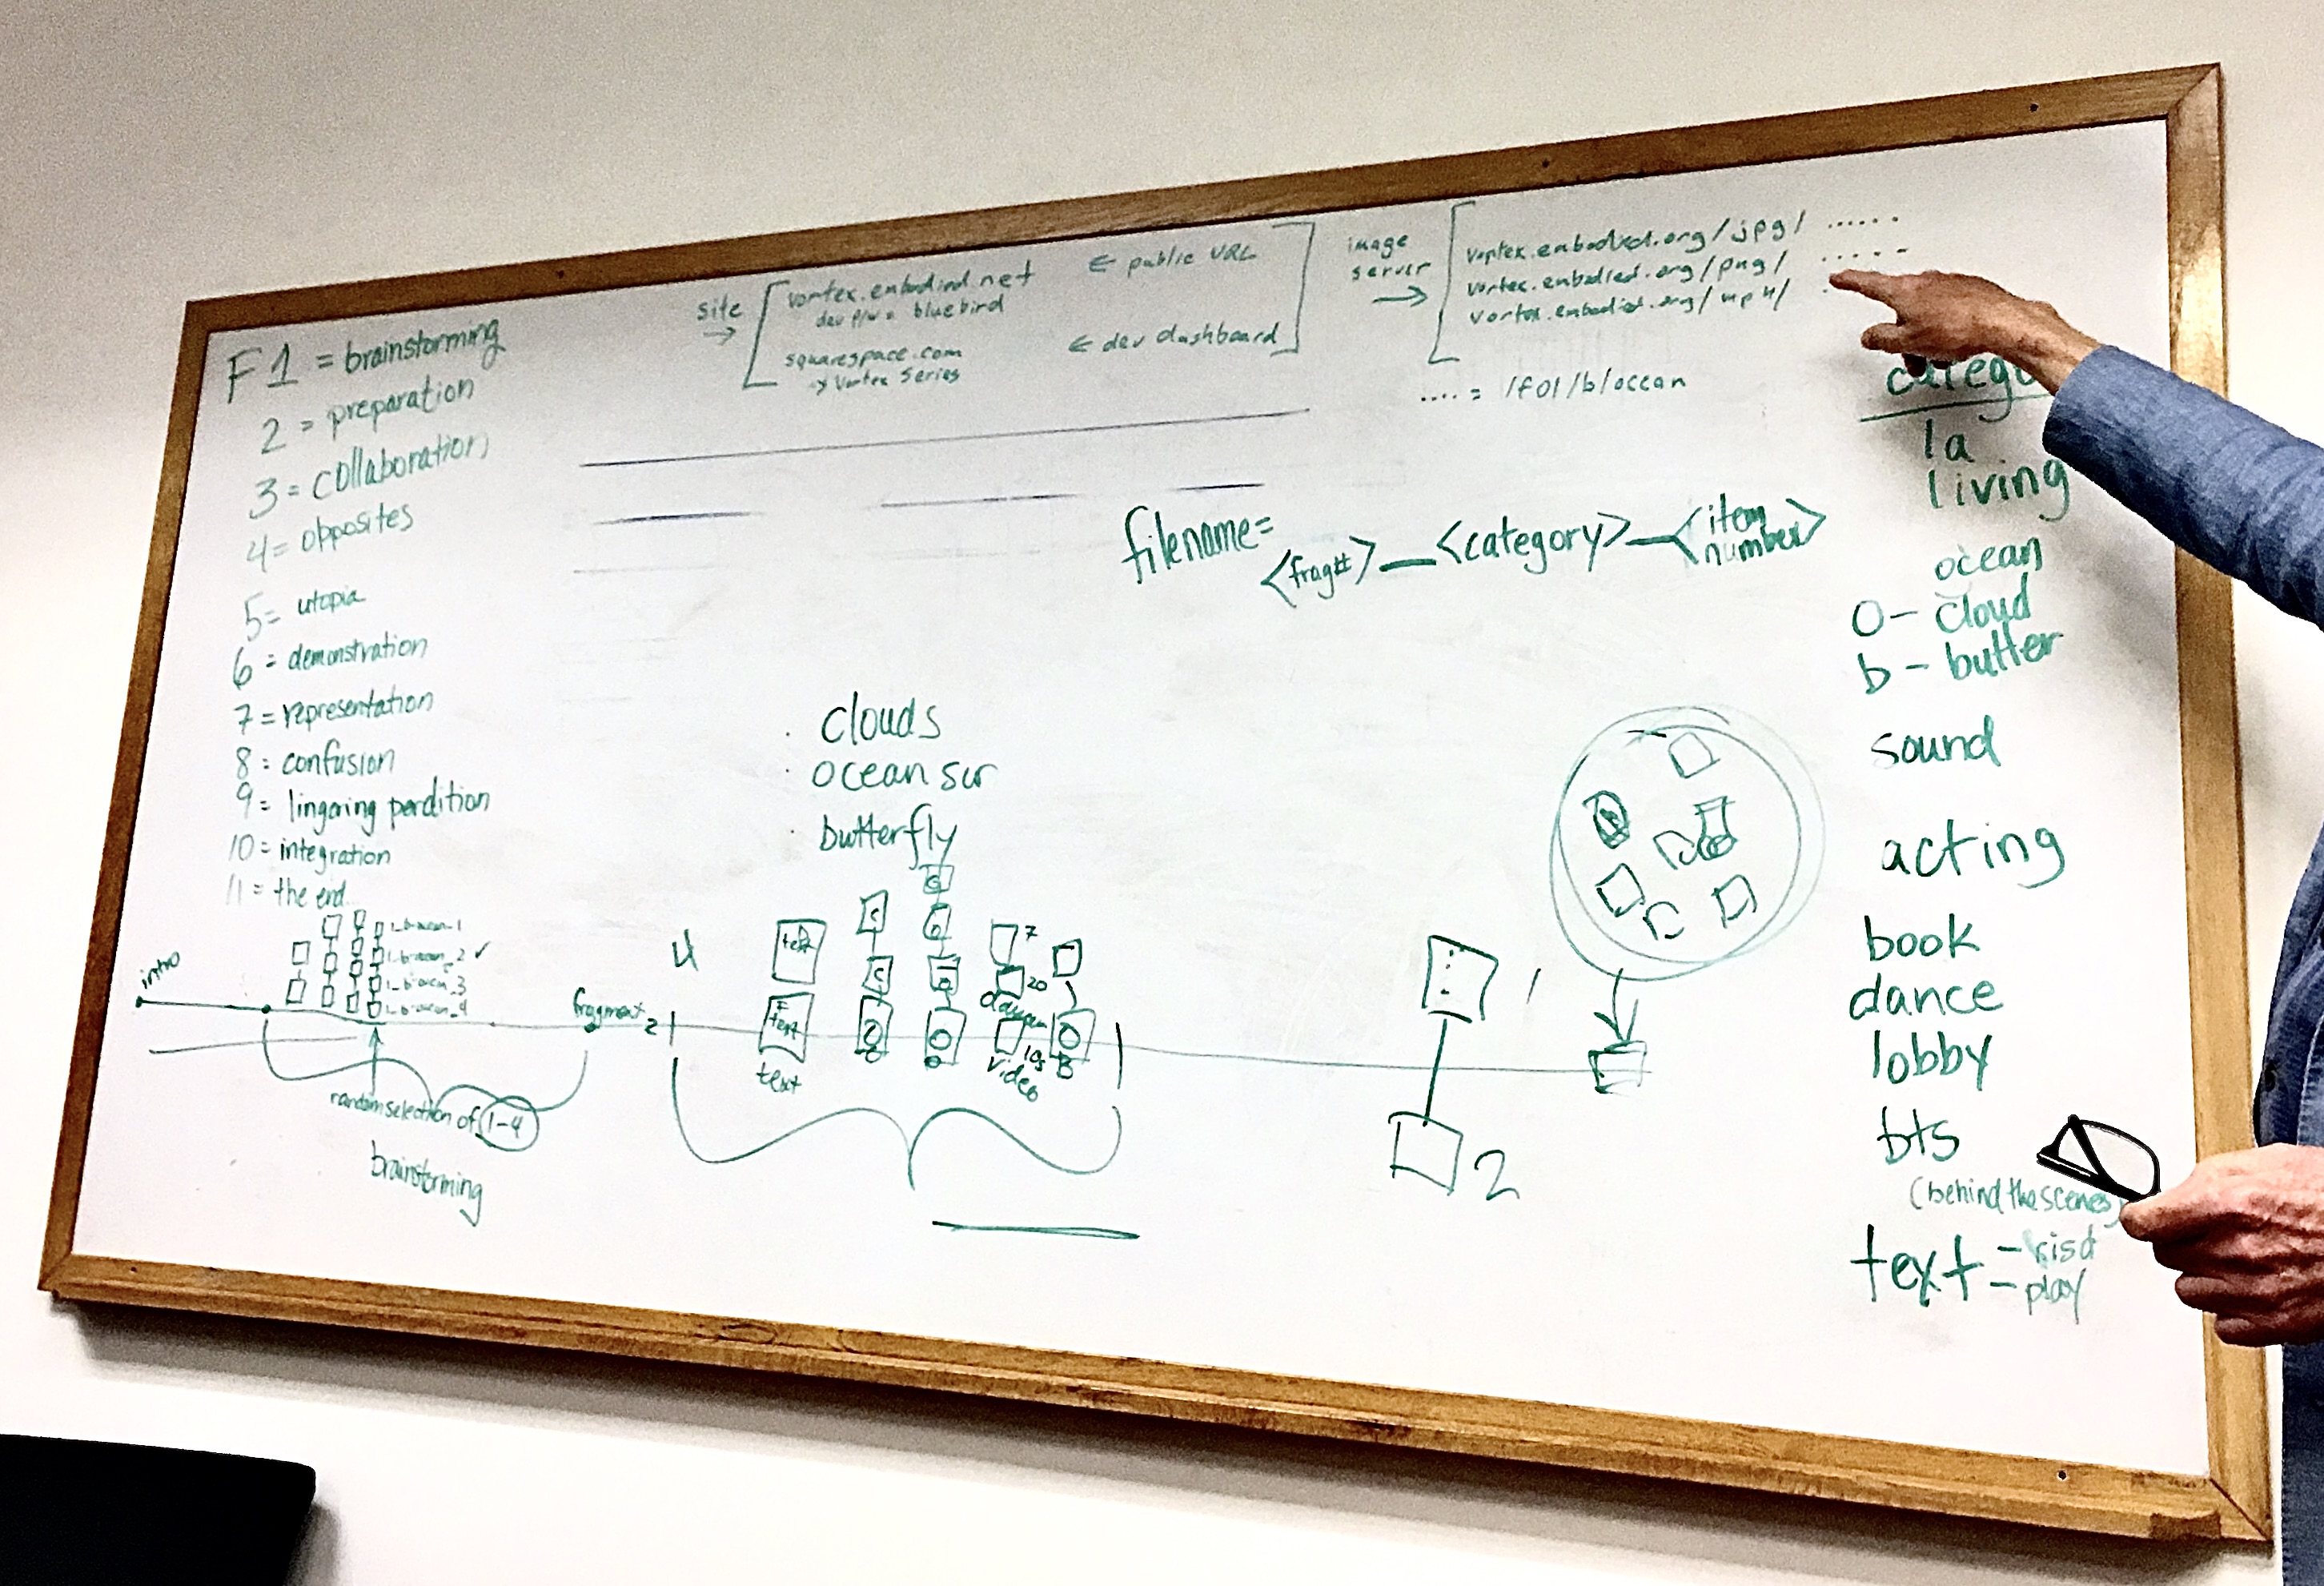 F1 = brainstorming
2 = preparation
3 = collaboration
4 = opposites
5 = utopia
6 = demonstration
7 = representation
8 = confusion
9 = lingaring perdition
10 = integration
11 = the end
site
→
vortex.embodied.net
dev p/w = bluebird
squarespace.com
→ Vortex Series
← public URL
← dev dashboard
image
server
→
vortex.embodied.org/jpg/ ......
vortex.embodied.org/png/ .....
vortex.embodied.org/mp4/
.... = /f01/b/ocean
filename=
<frag#> _ <category> _ <item
number>
clouds
ocean sur
butterfly
la
living
ocean
O - cloud
b - butter
sound
acting
book
dance
lobby
bts
(behind the scenes)
text - risd
- play
intro
fragment
2
random selection of 1-4
brainstorming
4
text
text
text
7
20
10s
video
B
1
2